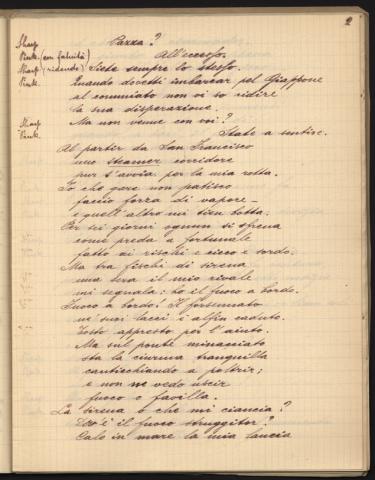 2
Sharp Pazza?
Pink. (con fatuità) All'eccesso.
Sharp (ridendo) Siete sempre lo stesso.
Pink. Quando dovetti imbarcar pel Giappone
al comiato non vi so ridire
la sua disperazione.
Sharp Ma non venne con voi?
Pink. State a sentire.
Al partir da San Francisco
uno steamer corridore
pur s'avvia per la mia rotta.
Io che gare non patisco
faccio forza di vapore –
e quell'altro mi tien botta.
Per sei giorni ognun si sfrena
come preda a fortunale
fatto ai rischi e cieco e sordo.
Ma tra fischi di sirena
una sera il mio rivale
mi segnala: ho il fuoco a bordo.
Fuoco a bordo! Il forsennato
ne' suoi lacci è alfin caduto.
Tosto appresto per l'aiuto.
Ma sul ponte minacciato
sta la ciurma tranquilla
canticchiando a poltrir;
e non vedo uscir
fuoco o favilla.
La sirena o che mi ciancia?
Dov'è il fuoco struggitor?
Calo in mare la mia lancia